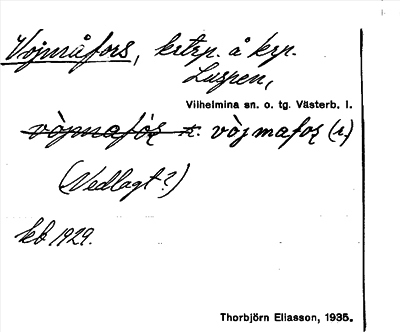 Vojmåfors, kstrp. å krp.
Luspen,
Vilhelmina sn. o. tg. Västerb. l.
vòjmafo̱ʂ (r.)
(Nedlagt?)
kb 1929.
Thorbjörn Eliasson, 1935.